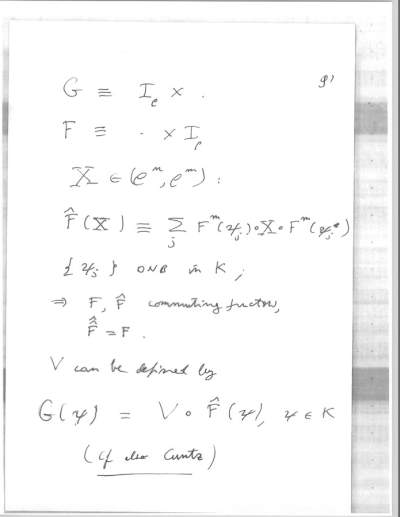 91
G ≡ I_ρ × .
F ≡ . × I_ρ
X ∈ (ρ^n, ρ^m) :
F̂(X) ≡ Σ_j F^m(ψ_j) ∘ X ∘ F^n(ψ_j*)
{ψ_j} ONB in K ;
⇒ F, F̂ commuting functors,
F̂̂ = F .
V can be defined by
G(ψ) = V ∘ F̂(ψ), ψ ∈ K
(cf also Cuntz)